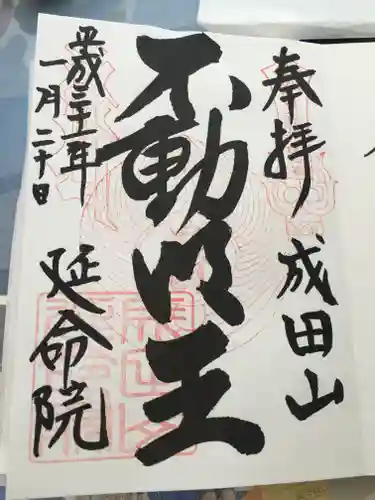 奉拝 成田山
不動明王
平成三十一年
一月二十日
延命院